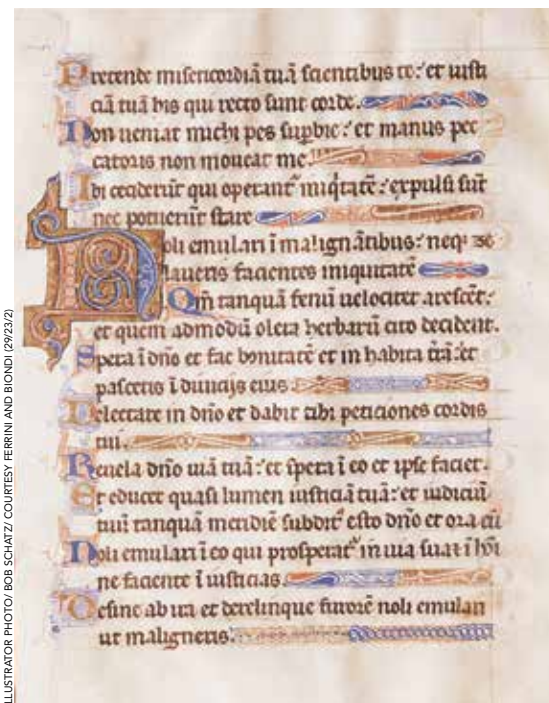 LLUSTRATOR PHOTO/ BOB SCHATZ/ COURTESY FERRINI AND BIONDI (29/23/2)
Pretende misericordiā tuā scientibus te: et iusti
ciā tuā his qui recto sunt corde.
Non ueniat michi pes supbie: et manus pec
catoris non moueat me.
Ibi ceciderūt qui operant iniqtatē: expulsi sūt
nec potuerūt stare
Noli emulari ī malignātibus: neq ze
laueris facientes iniquitatē
Qm tanquā fenū uelociter arescēt:
et quem admodū olera herbarū cito decident.
Spera ī dno et fac bonitatē et in habita trā: et
pasceris ī diuicijs eius
Delectare in dno et dabit tibi peticiones cordis
tui.
Reuela dno uiā tuā: et spera ī eo et ipse faciet.
Et educet quasi lumen iusticiā tuā: et iudiciū
tuū tanquā meridiē subdit esto dno et ora eū
Noli emulari ī eo qui prosperat in uia sua: ī hoī
ne faciente ī iusticias
Desine ab ira et derelinque furorē noli emulari
ut maligneris.